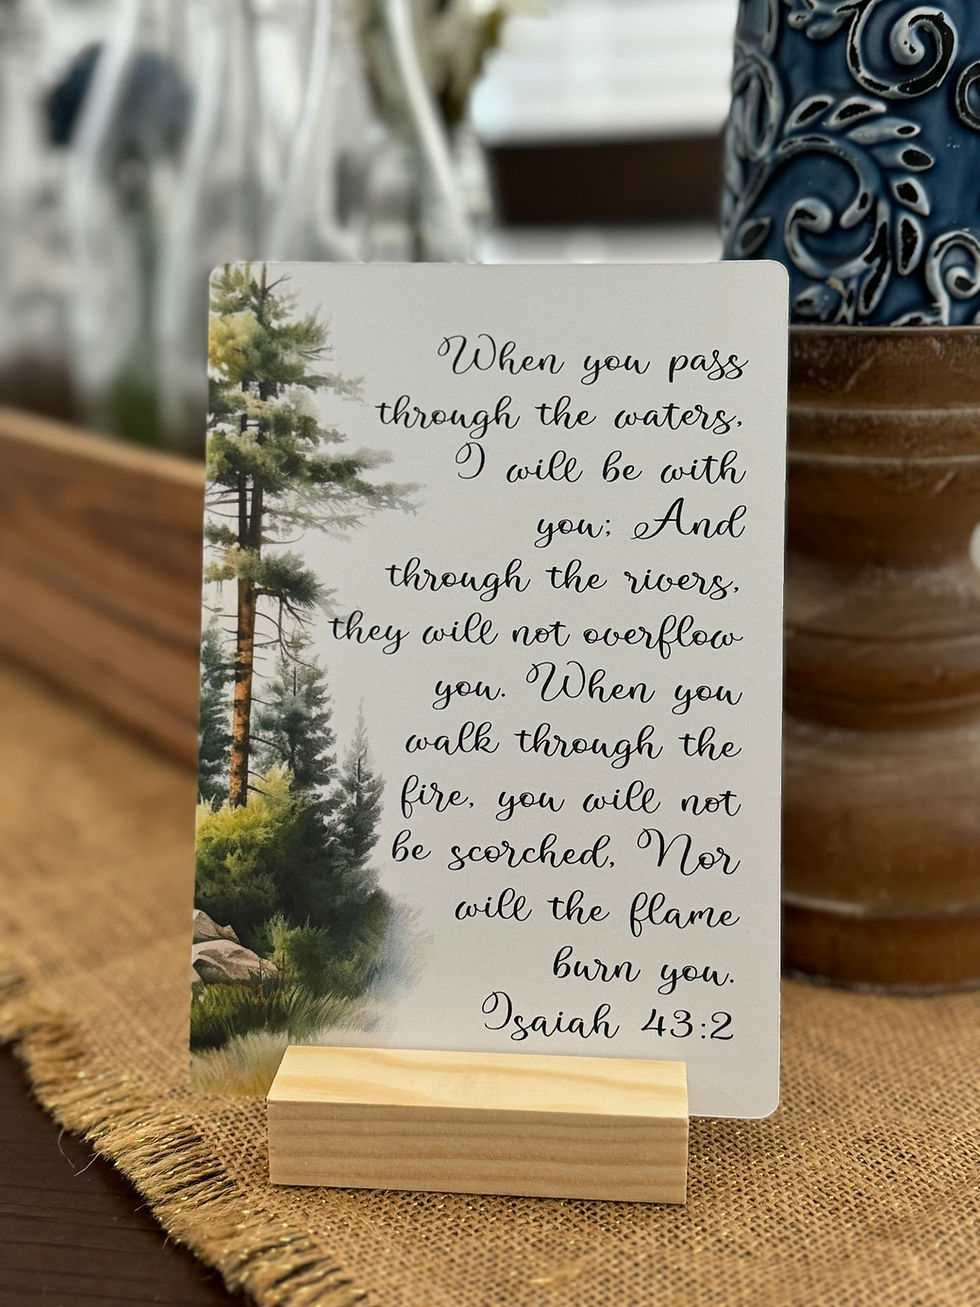 When you pass
through the waters,
I will be with
you; And
through the rivers,
they will not overflow
you. When you
walk through the
fire, you will not
be scorched, Nor
will the flame
burn you.
Isaiah 43:2